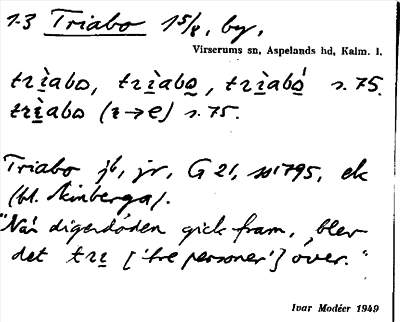 1-3 Triabo 15/8, by,
Virserums sn, Aspelands hd, Kalm. l.
trìabo, trìabo, trìabó s. 75.
trìabo (ɩ→e) s. 75.
Triabo jb, jr, G 21, 1795, ek
(bl. Skinberga).
"När digerdöden gick fram, blev
det trɩ ['tre personer'] över."
Ivar Modéer 1949